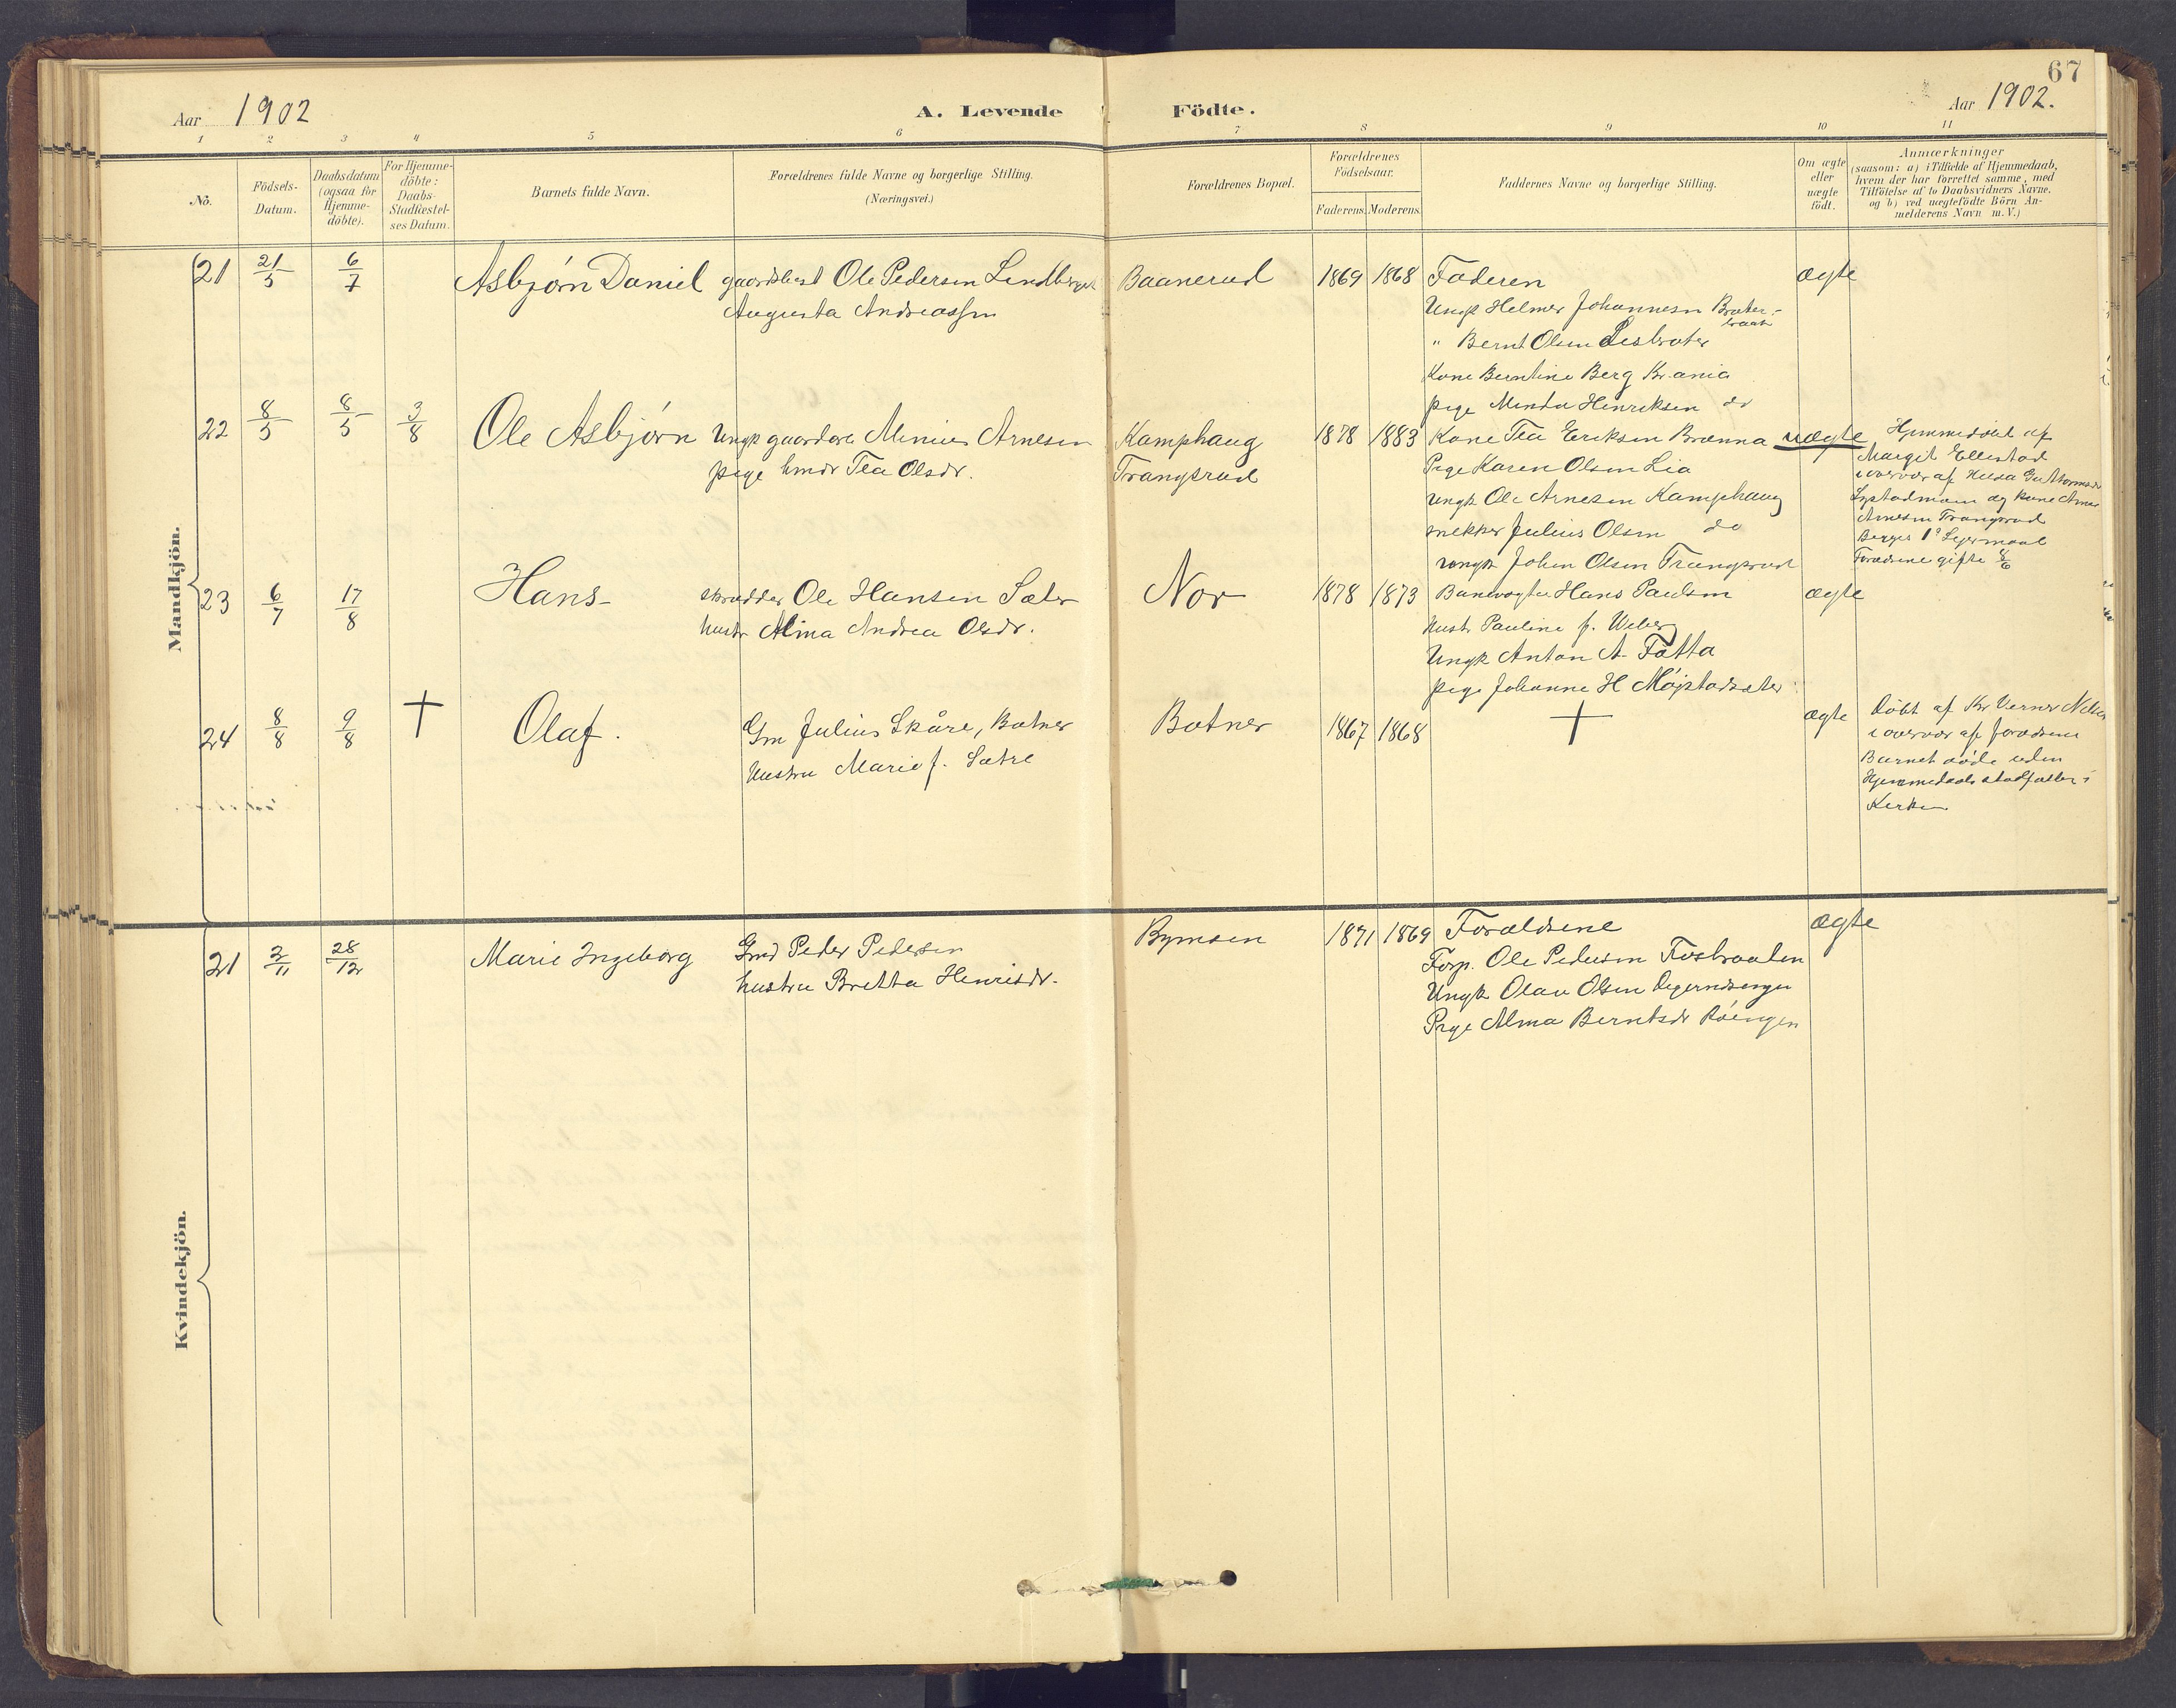 67
Aar 1902
A. Levende Födte.
Aar 1902.
1 2 3 4 5 6 7 8 9 10 11
No.
Födsels-
Datum.
Daabsdatum
(ogsaa for
Hjemme-
döbte).
For Hjemme-
döbte:
Daabs-
Stadfæstel-
ses Datum.
Barnets fulde Navn.
Forældrenes fulde Navne og borgerlige Stilling.
(Næringsvei.)
Forældrenes Bopæl.
Forældrenes
Födselsaar.
Faderens. Moderens.
Faddernes Navne og borgerlige Stilling.
Om ægte
eller
uægte
födt.
Anmærkninger
(saasom: a) i Tilfælde af Hjemmedaab,
hvem der har forrettet samme, med
Tilföielse af to Daabsvidners Navne,
og b) ved uægtefödte Börn An-
melderens Navn m.V.)
Mandkjön.
21 21/5 6/7 Asbjørn Daniel
Ole Pedersen
Augusta Andreassen
Baanerud 1869 1868
Faderen
Ungk Helmer Johannesen
" Bernt Olsen
Kone Berntine Berg Kr.ania
pige Minda Henriksen do
ægte
22 8/5 8/5 3/8 Ole Asbjørn
Ungk Minius Arnesen
pige Tea Olsdr.
Kamphaug
Trangsrud
1878 1883
Kone Tea Eriksen Brænna
Pige Karen Olsen Lia
Ungk Ole Arnesen Kamphaug
snekker Julius Olsen do
ungk Johan Olsen Trangsrud
uægte
Hjemmedöbt af
Margit Ellestad
Forældrene gifte 8/6
23 6/7 17/8 Hans
skrædder Ole Hansen Sæter
hustr Alma Andrea Olsdr.
Nor 1878 1873
Banevogter Hans Paulsen
hustr Pauline f. Weberg
Ungk Anton A. Tøtta
pige Johanne H
ægte
24 8/8 9/8 † Olaf.
Gm Julius Skåre, Botner
Hustru Marie f. Sætre
Botner 1867 1868
†
ægte
döbt af Kr Verner
i overvær af forældrene
Barnet döde uden
Hjemmedaabs stadfæstelse i
Kirken
Kvindekjön.
21 2/11 28/12 Marie Ingeborg
Gmd Peder Pedersen
hustru Bretta Henrisdr.
Bymoen 1871 1869
Forældrene
Forp. Ole Pedersen Fosbraaten
Ungk Olav Olsen
Pige Alma Berntsdr Röengen
ægte